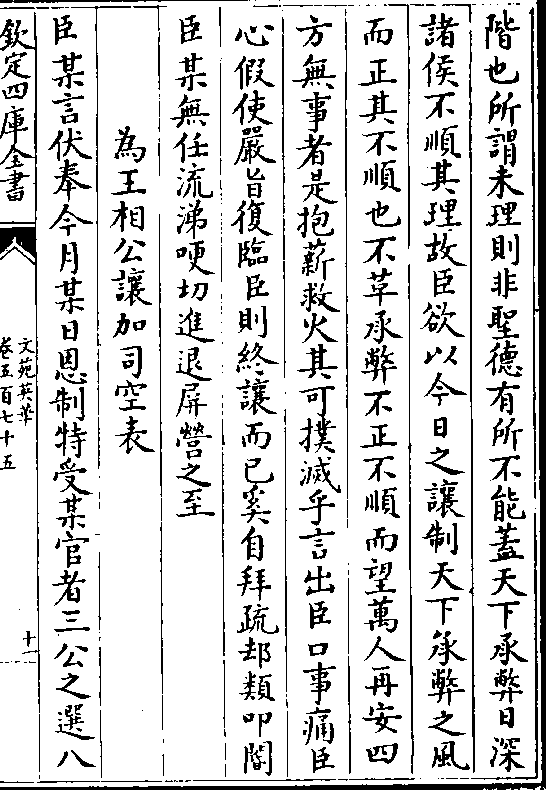 階也所謂未理則非聖德有所不能蓋天下承弊日深
諸侯不順其理故臣欲以今日之讓制天下承弊之風
而正其不順也不草承弊不正不順而望萬人再安四
方無事者是抱薪救火其可撲滅乎言出臣口事痛臣
心假使嚴旨復臨臣則終讓而已奚自拜疏却類叩閽
臣某無任流涕哽切進退屏營之至
為王相公讓加司空表
臣某言伏奉今月某日恩制特受某官者三公之選八
欽定四庫全書
文苑英華
卷五百七十五
十一